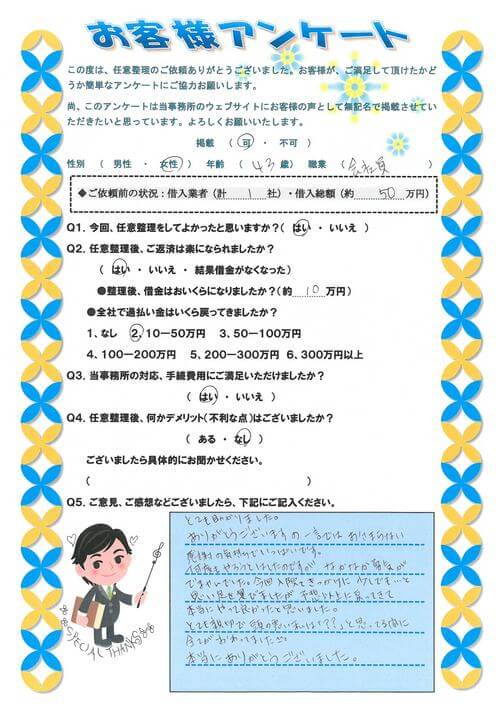 お客様アンケート
この度は、任意整理のご依頼ありがとうございました。お客様が、ご満足して頂けたかど
うか簡単なアンケートにご協力お願いします。
尚、このアンケートは当事務所のウェブサイトにお客様の声として無記名で掲載させてい
ただきたいと思っています。よろしくお願いいたします。
掲載 ( 可 ・ 不可 )
性別 ( 男性 ・ 女性 ) 年齢 ( 43 歳 ) 職業 ( 会社員 )
◆ご依頼前の状況:借入業者(計 1 社)・借入総額(約 50 万円)
Q1. 今回、任意整理をしてよかったと思いますか?( はい ・ いいえ )
Q2. 任意整理後、ご返済は楽になられましたか?
( はい ・ いいえ ・ 結果借金がなくなった)
●整理後、借金はおいくらになりましたか?(約 10 万円)
●全社で過払い金はいくら戻ってきましたか?
1、なし 2、10-50万円 3、50-100万円
4、100-200万円 5、200-300万円 6、300万円以上
Q3. 当事務所の対応、手続費用にご満足いただけましたか?
( はい ・ いいえ )
Q4. 任意整理後、何かデメリット(不利な点)はございましたか?
( ある ・ なし )
ございましたら具体的にお聞かせください。
( )
Q5. ご意見、ご感想などございましたら、下記にご記入ください。
とても助かりました。
ありがとうございますの一言ではおさまらない
感謝の気持ちでいっぱいです。
何度もやろうとはしたのですが なかなか勇気が
でませんでした。今回入院をきっかけに少しでも…と
思い足を運びましたが予想以上に戻ってきて
本当にやって良かったと思いました。
とても親切で頭の悪い私は「??」と思ってる間に
全てがおわってました
本当にありがとうございました。
SPECIAL THANKS